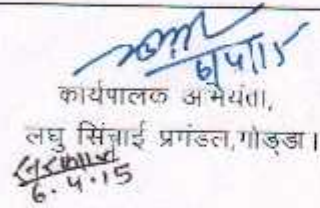 6/4/15
कार्यपालक अभियंता,
लघु सिंचाई प्रमंडल,गोड्डा।
6.4.15